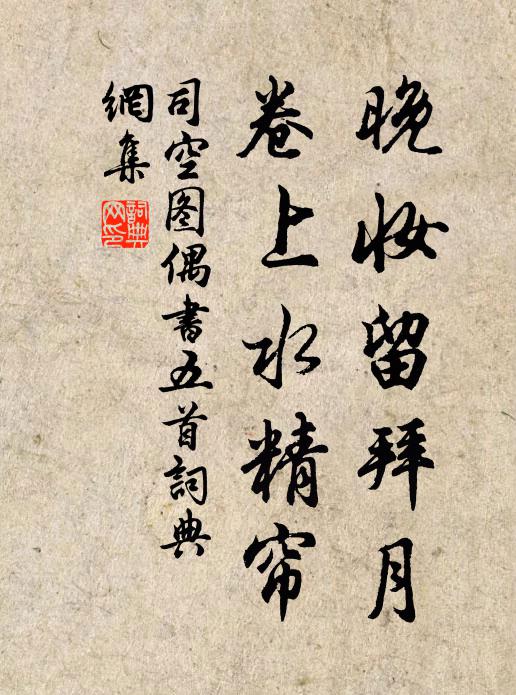 晚妆留拜月
卷上水精帘
司空图偶書五首詞典
網集
詞典
网印